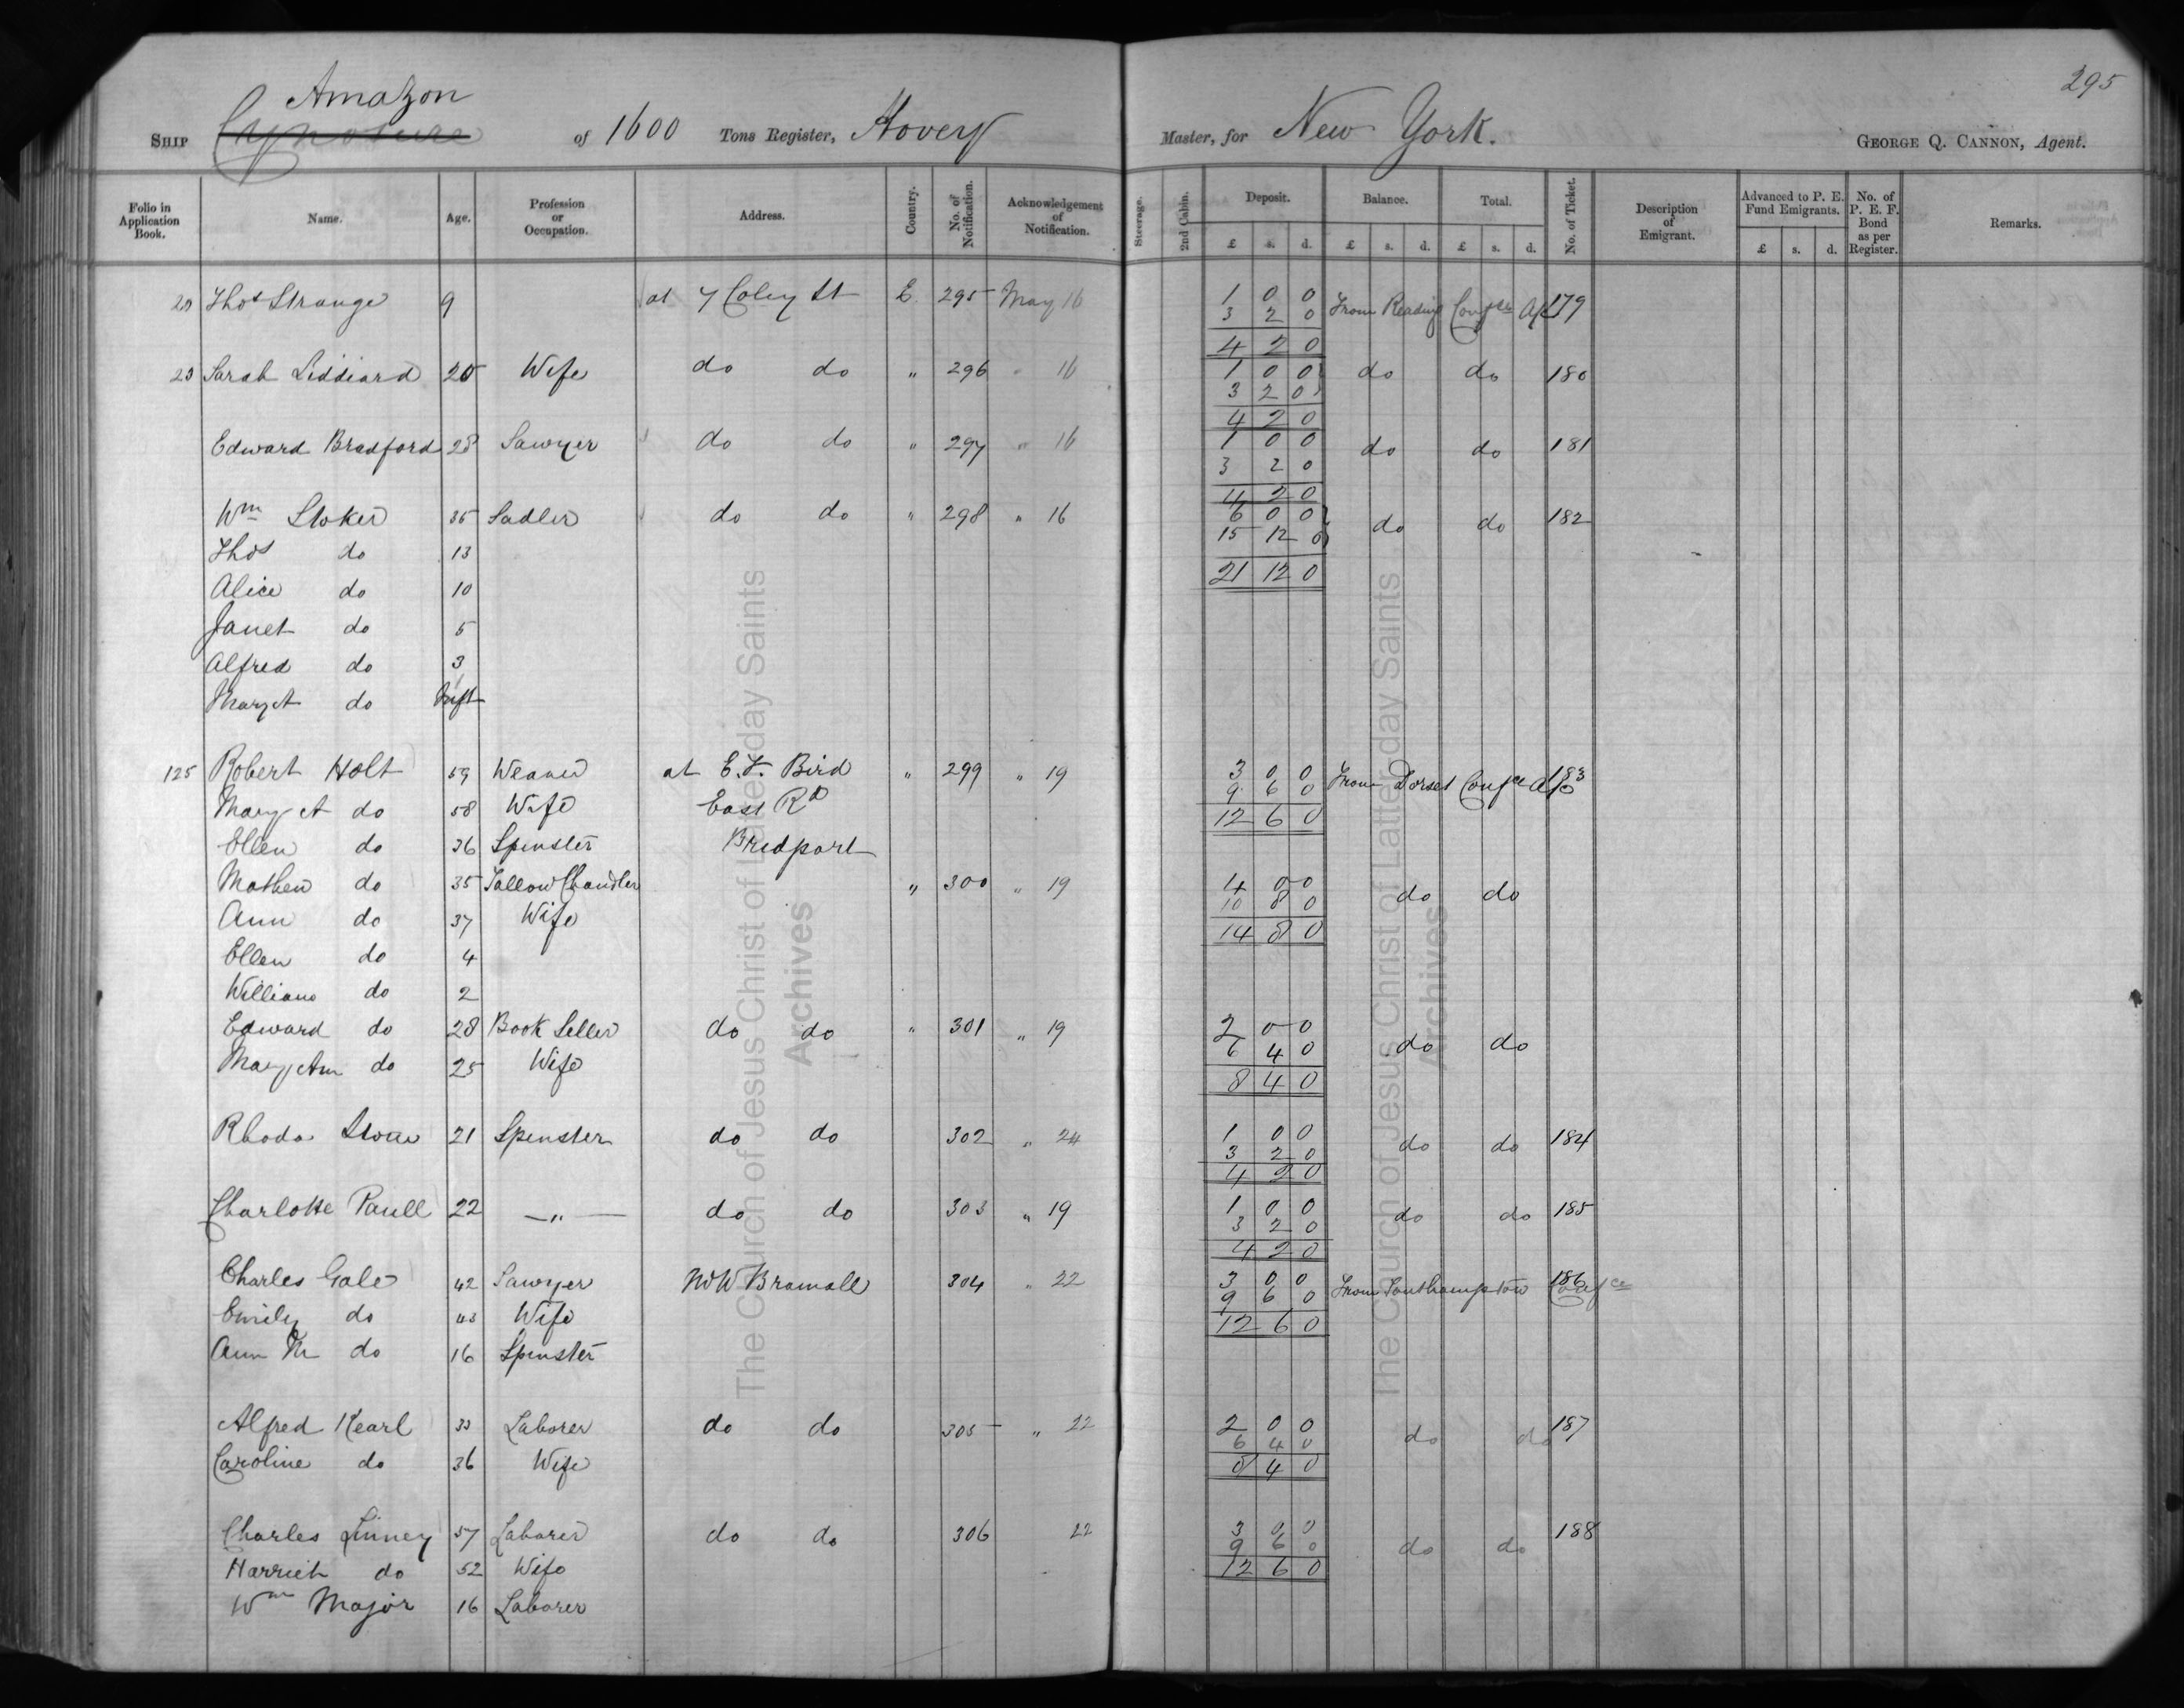 295
Amazon
SHIP Cynosure of 1600 Tons Register, Hovey Master, for New York. GEORGE Q. CANNON, Agent.
Folio in Application Book. Name. Age. Profession or Occupation. Address. Country. No. of Notification. Acknowledgement of Notification. Steerage. 2nd Cabin. Deposit. Balance. Total. No. of Ticket. Description of Emigrant. Advanced to P. E. Fund Emigrants. No. of P. E. F. Bond as per Register. Remarks.
£ s. d. £ s. d. £ s. d. £ s. d.
20 Thos Strange 9 at 7 Coley St E. 295 May 16 1 0 0 From Reading Confce A/c 179
3 2 0
4 2 0
23 Sarah Liddiard 20 Wife do do " 296 " 16 1 0 0 do do 180
3 2 0
4 2 0
Edward Bradford 28 Sawyer do do " 297 " 16 1 0 0 do do 181
3 2 0
4 2 0
Wm Stoker 35 Sadler do do " 298 " 16 6 0 0 do do 182
15 12 0
Thos do 13
21 12 0
Alice do 10
Janet do 5
Alfred do 3
Mary A do Inft
125 Robert Holt 59 Weaver at E. F. Bird " 299 " 19 3 0 0 From Dorset Confce A/c 183
9 6 0
Mary A do 58 Wife East Rd 12 6 0
Ellen do 36 Spinster Bredport
Mathew do 35 Tallow Chandler " 300 " 19 4 0 0 do do
10 8 0
Ann do 37 Wife 14 8 0
Ellen do 4
William do 2
Edward do 28 Book Seller do do " 301 " 19 2 0 0 do do
6 4 0
Mary Ann do 25 Wife 8 4 0
Rhoda 21 Spinster do do 302 " 24 1 0 0 do do 184
3 2 0
4 2 0
Charlotte Paull 22 — " — do do 303 " 19 1 0 0 do do 185
3 2 0
4 2 0
Charles Gale 42 Sawyer Bramall 304 " 22 3 0 0 From Southampton Confce 186
9 6 0
Emily do 43 Wife 12 6 0
Ann M do 16 Spinster
Alfred Kearl 33 Laborer do do 305 " 22 2 0 0 do do 187
6 4 0
Caroline do 36 Wife 8 4 0
Charles Linney 57 Laborer do do 306 22 3 0 0 do do 188
9 6 0
Harriet do 52 Wife 12 6 0
Wm Major 16 Laborer
The Church of Jesus Christ of Latter-day Saints
Archives
The Church of Jesus Christ of Latter-day Saints
Archives